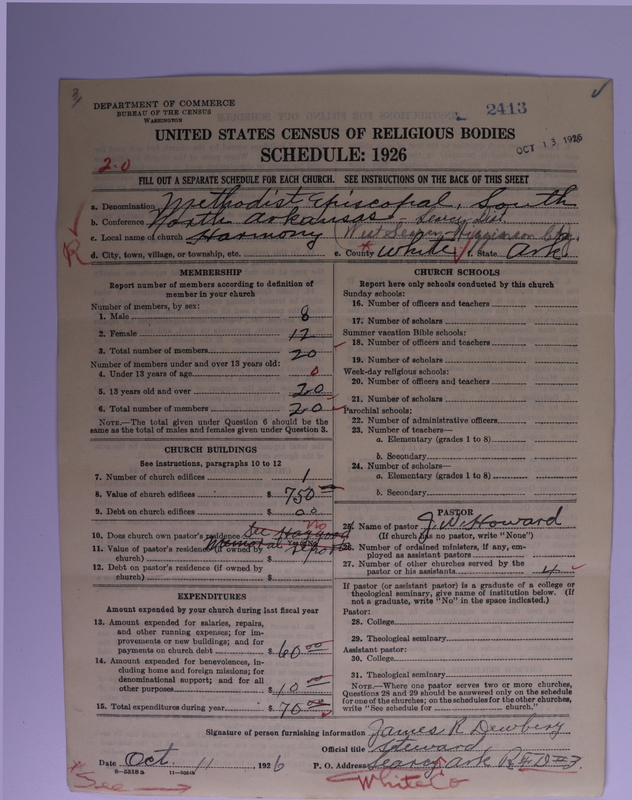 DEPARTMENT OF COMMERCE
BUREAU OF THE CENSUS
WASHINGTON
2413
OCT 13 1926
UNITED STATES CENSUS OF RELIGIOUS BODIES
SCHEDULE: 1926
2-0
FILL OUT A SEPARATE SCHEDULE FOR EACH CHURCH. SEE INSTRUCTIONS ON THE BACK OF THIS SHEET
a. Denomination Methodist Episcopal, South
b. Conference North Arkansas - Searcy Dist.
c. Local name of church Harmony (West Searcy, Higginson Chg.
R
d. City, town, village, or township, etc.
e. County White f. State Ark
MEMBERSHIP
Report number of members according to definition of
member in your church
Number of members, by sex:
1. Male 8
2. Female 12
3. Total number of members 20
Number of members under and over 13 years old:
4. Under 13 years of age 0
5. 13 years old and over 20
6. Total number of members 20
NOTE.—The total given under Question 6 should be the
same as the total of males and females given under Question 3.
CHURCH BUILDINGS
See instructions, paragraphs 10 to 12
7. Number of church edifices 1
8. Value of church edifices $ 750
9. Debt on church edifices $ 00
10. Does church own pastor's residence See Haggood No
11. Value of pastor's residence (if owned by Memorial report
church) $
12. Debt on pastor's residence (if owned by
church) $
EXPENDITURES
Amount expended by your church during last fiscal year
13. Amount expended for salaries, repairs,
and other running expenses; for im-
provements or new buildings; and for
payments on church debt $ 60 00
14. Amount expended for benevolences, in-
cluding home and foreign missions; for
denominational support; and for all
other purposes $ 10 00
15. Total expenditures during year $ 70 00
CHURCH SCHOOLS
Report here only schools conducted by this church
Sunday schools:
16. Number of officers and teachers
17. Number of scholars
Summer vacation Bible schools:
18. Number of officers and teachers
19. Number of scholars
Week-day religious schools:
20. Number of officers and teachers
21. Number of scholars
Parochial schools:
22. Number of administrative officers
23. Number of teachers—
a. Elementary (grades 1 to 8)
b. Secondary
24. Number of scholars—
a. Elementary (grades 1 to 8)
b. Secondary
PASTOR
25. Name of pastor J. W. Howard
(If church has no pastor, write "None")
26. Number of ordained ministers, if any, em-
ployed as assistant pastors
27. Number of other churches served by the
pastor or his assistants 4
If pastor (or assistant pastor) is a graduate of a college or
theological seminary, give name of institution below. (If
not a graduate, write "No" in the space indicated.)
Pastor:
28. College
29. Theological seminary
Assistant pastor:
30. College
31. Theological seminary
NOTE.—Where one pastor serves two or more churches,
Questions 28 and 29 should be answered only on the schedule
for one of the churches; on the schedules for the other churches,
write "See schedule for church."
Signature of person furnishing information James R Dewberry
Official title Steward
Date Oct. 11, 1926 P. O. Address Searcy Ark R F D #3
8-5318 a
See
White Co